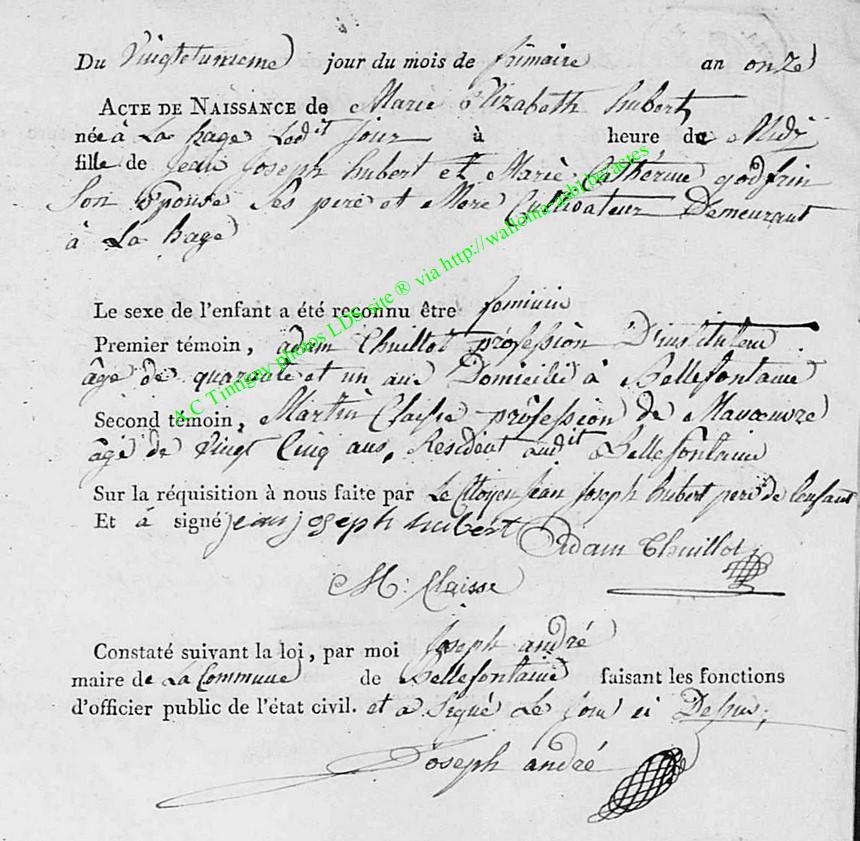 Du Vingtetunieme jour du mois de frimaire an onze
ACTE DE NAISSANCE de Marie Elizabeth hubert
née à La hage Ledit Jour à heure de Midy
fille de Jean Joseph hubert et Marie Catherine godfrin
Son Epouse Ses pere et Mere Cultivateur Demeurant
à La hage
Le sexe de l'enfant a été reconnu être feminin
Premier témoin, adam Thuillot profession D'instituteur
âgé de quarante et un ans Domicilié à Bellefontaine
Second témoin, Martin Claisse profession de Manoeuvre
âgé de Vingt Cinq ans, Resident audit Bellefontaine
Sur la réquisition à nous faite par Le Citoyen Jean Joseph hubert pere de lenfant
Et à signé jean joseph hubert Adam Thuillot
M: Claisse
Constaté suivant la loi, par moi Joseph andré
maire de La Commune de Bellefontaine faisant les fonctions
d'officier public de l'état civil. et a Signé Le Jour ei Desus;
Joseph andré
A.C Tintigny photos LDS site ® via http://wallonia-asbl.org/actes